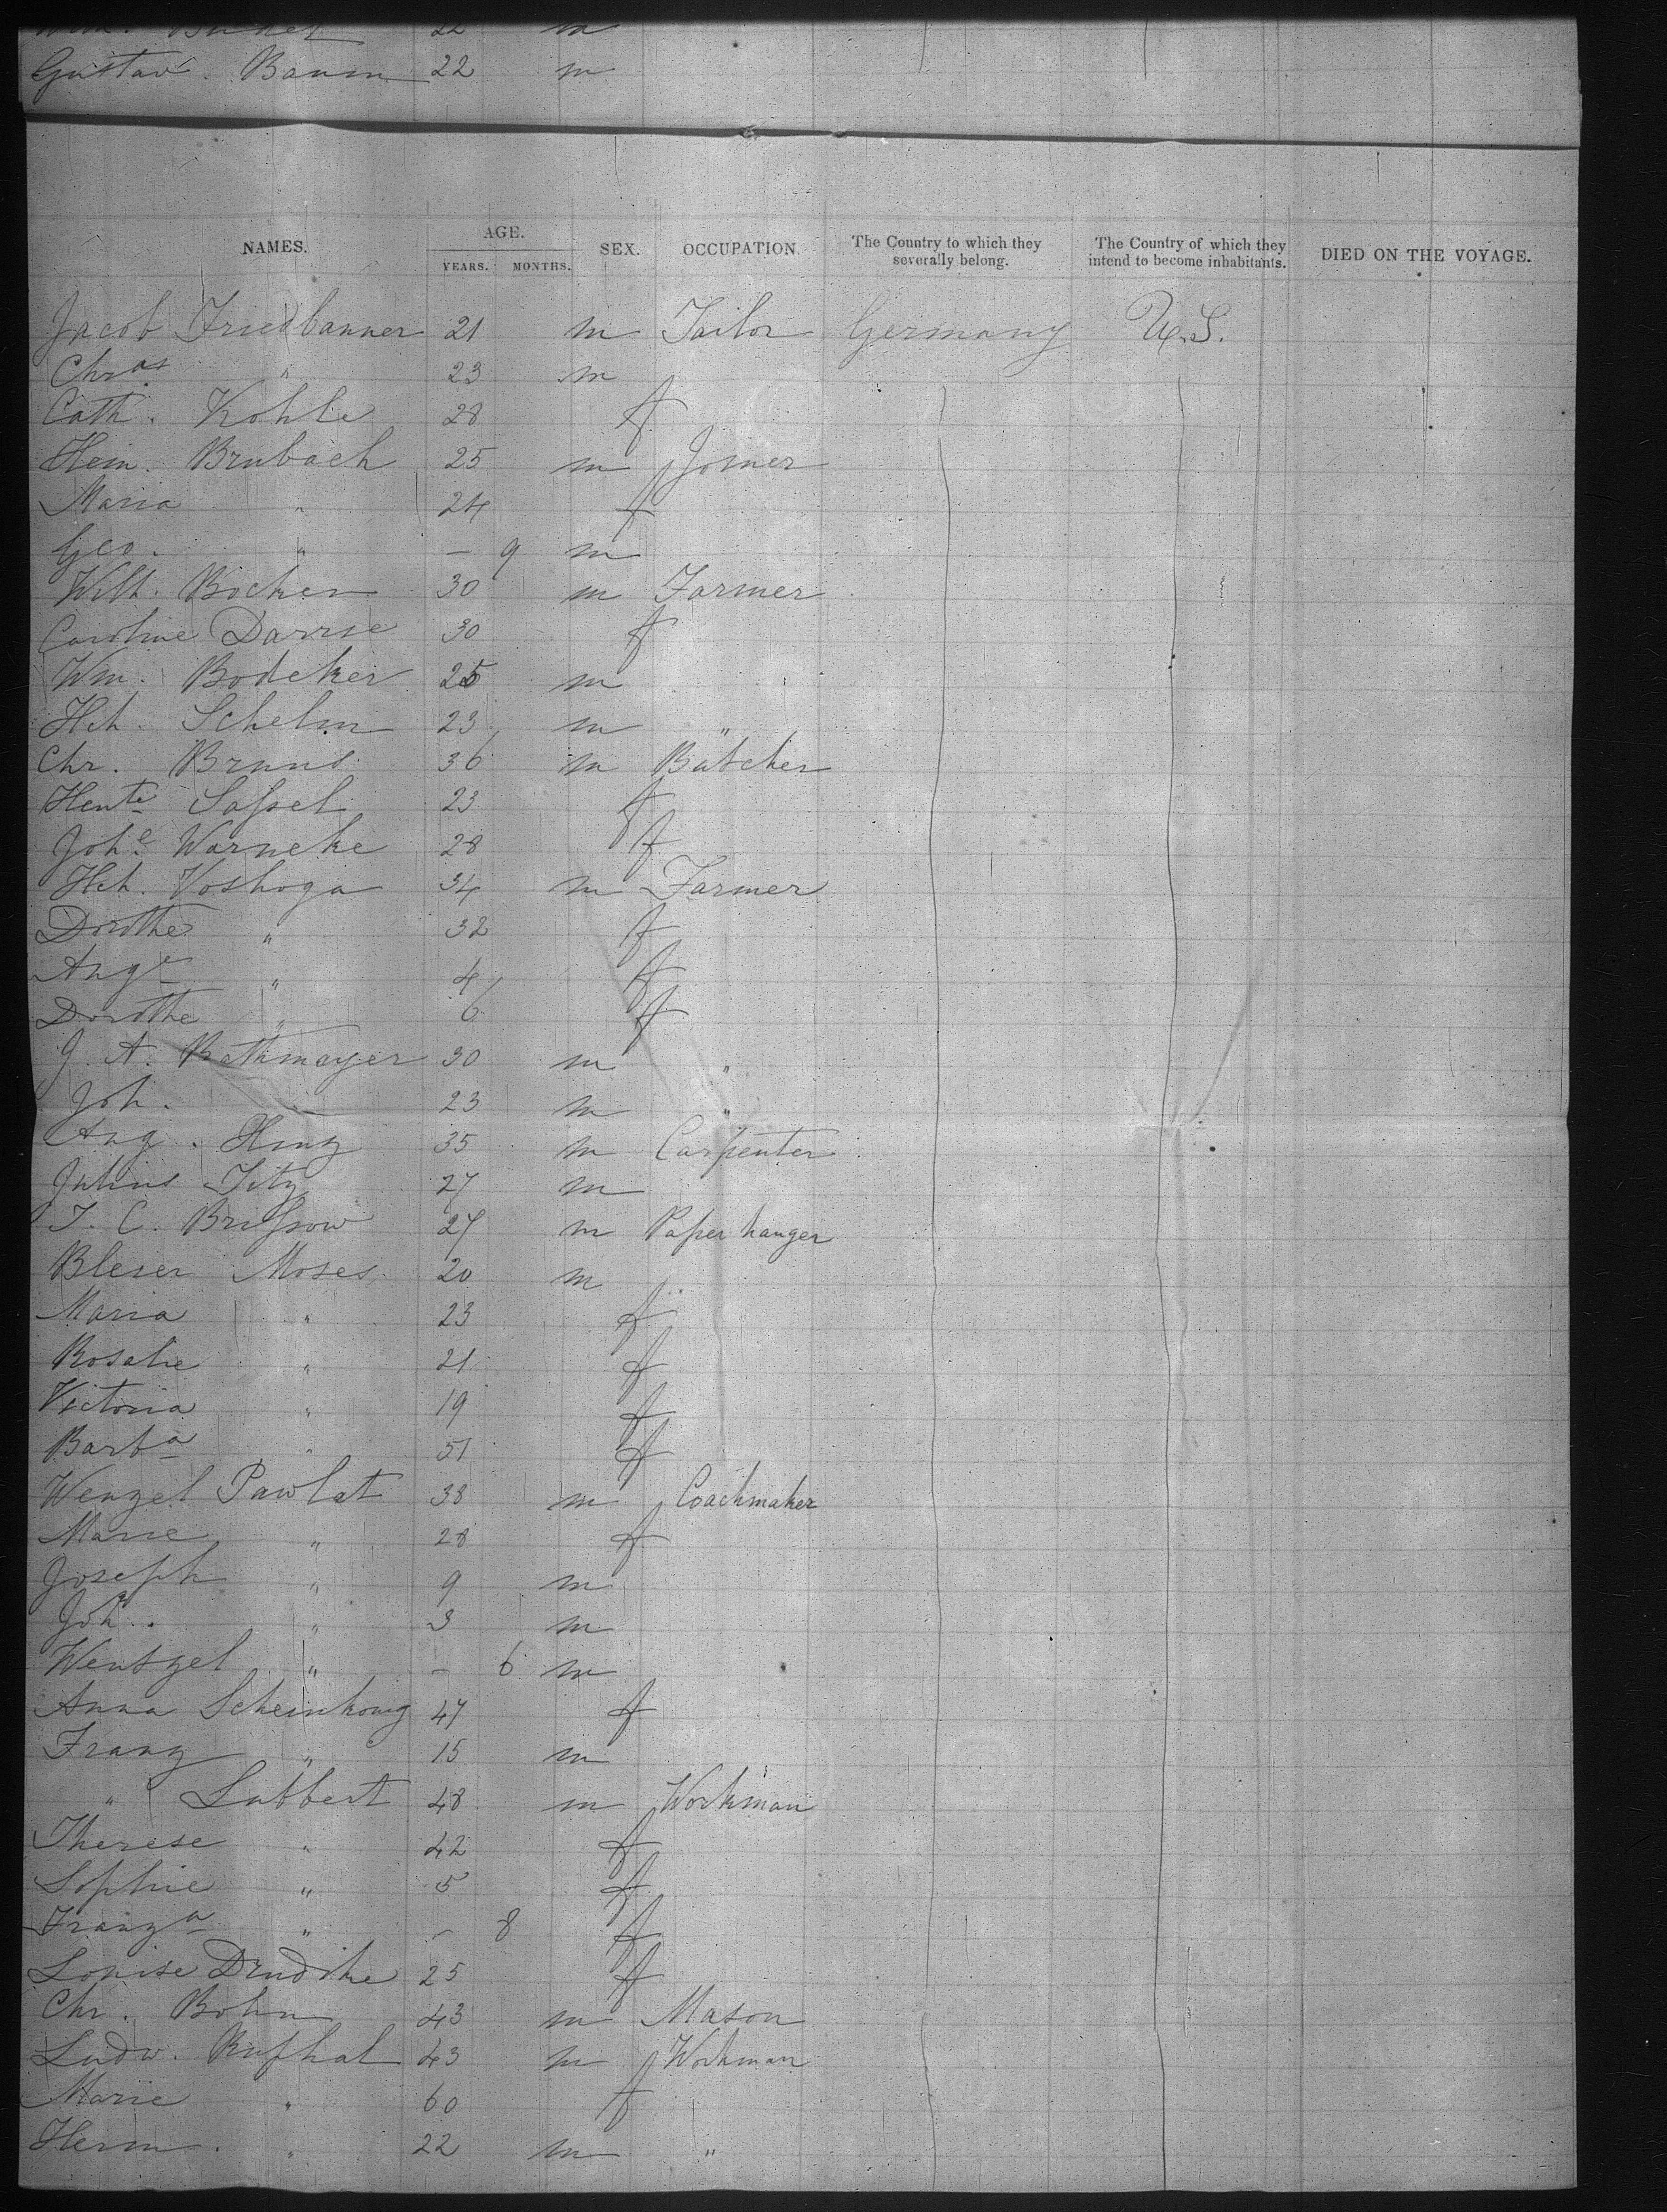 Gustav. Baum 22 m
NAMES. AGE. YEARS. MONTHS. SEX. OCCUPATION. The Country to which they severally belong. The Country of which they intend to become inhabitants. DIED ON THE VOYAGE.
Jacob Friedbanner 21 m Tailor Germany U.S.
Chras " 23 m
Cath. Kohle 28 f
Hein. Brubach 25 m Joiner
Maria " 24 f
Geo. " – 9 m
Wilh. Bocker 30 m Farmer
Caroline 30 f
Wm. Bodeker 25 m
Hch. Schelm 23 m "
Chr. Bruns 36 m Butcher
Hente Sassel 23 f
Johe Warneke 28 f
Hch. Voshoga 34 m Farmer
Dorothe " 32 f
Auge " 4 f
Dorothe " 6 f
J. A. Rathmayer 30 m "
Joh. 23 m "
Aug. Hinz 35 m Carpenter
Julius Titz 27 m
T. C. 27 m Paper hanger
Moses 20 m
Maria " 23 f
Rosalie " 21 f
Victoria " 19 f
Barba " 51 f
Wenzel Pawlat 38 m Coachmaker
Marie " 28 f
Joseph " 9 m
Joh. " 3 m
Wentzel " – 6 m
Anna Scheinkonig 47 f
Franz " 15 m
" Lubbert 48 m Workman
Therese " 42 f
Sophie " 5 f
Franza " – 8 f
Louise 25 f
Chr. Bohn 43 m Mason
Ludw. 43 m Workman
Marie " 60 f
Herm. " 22 m "